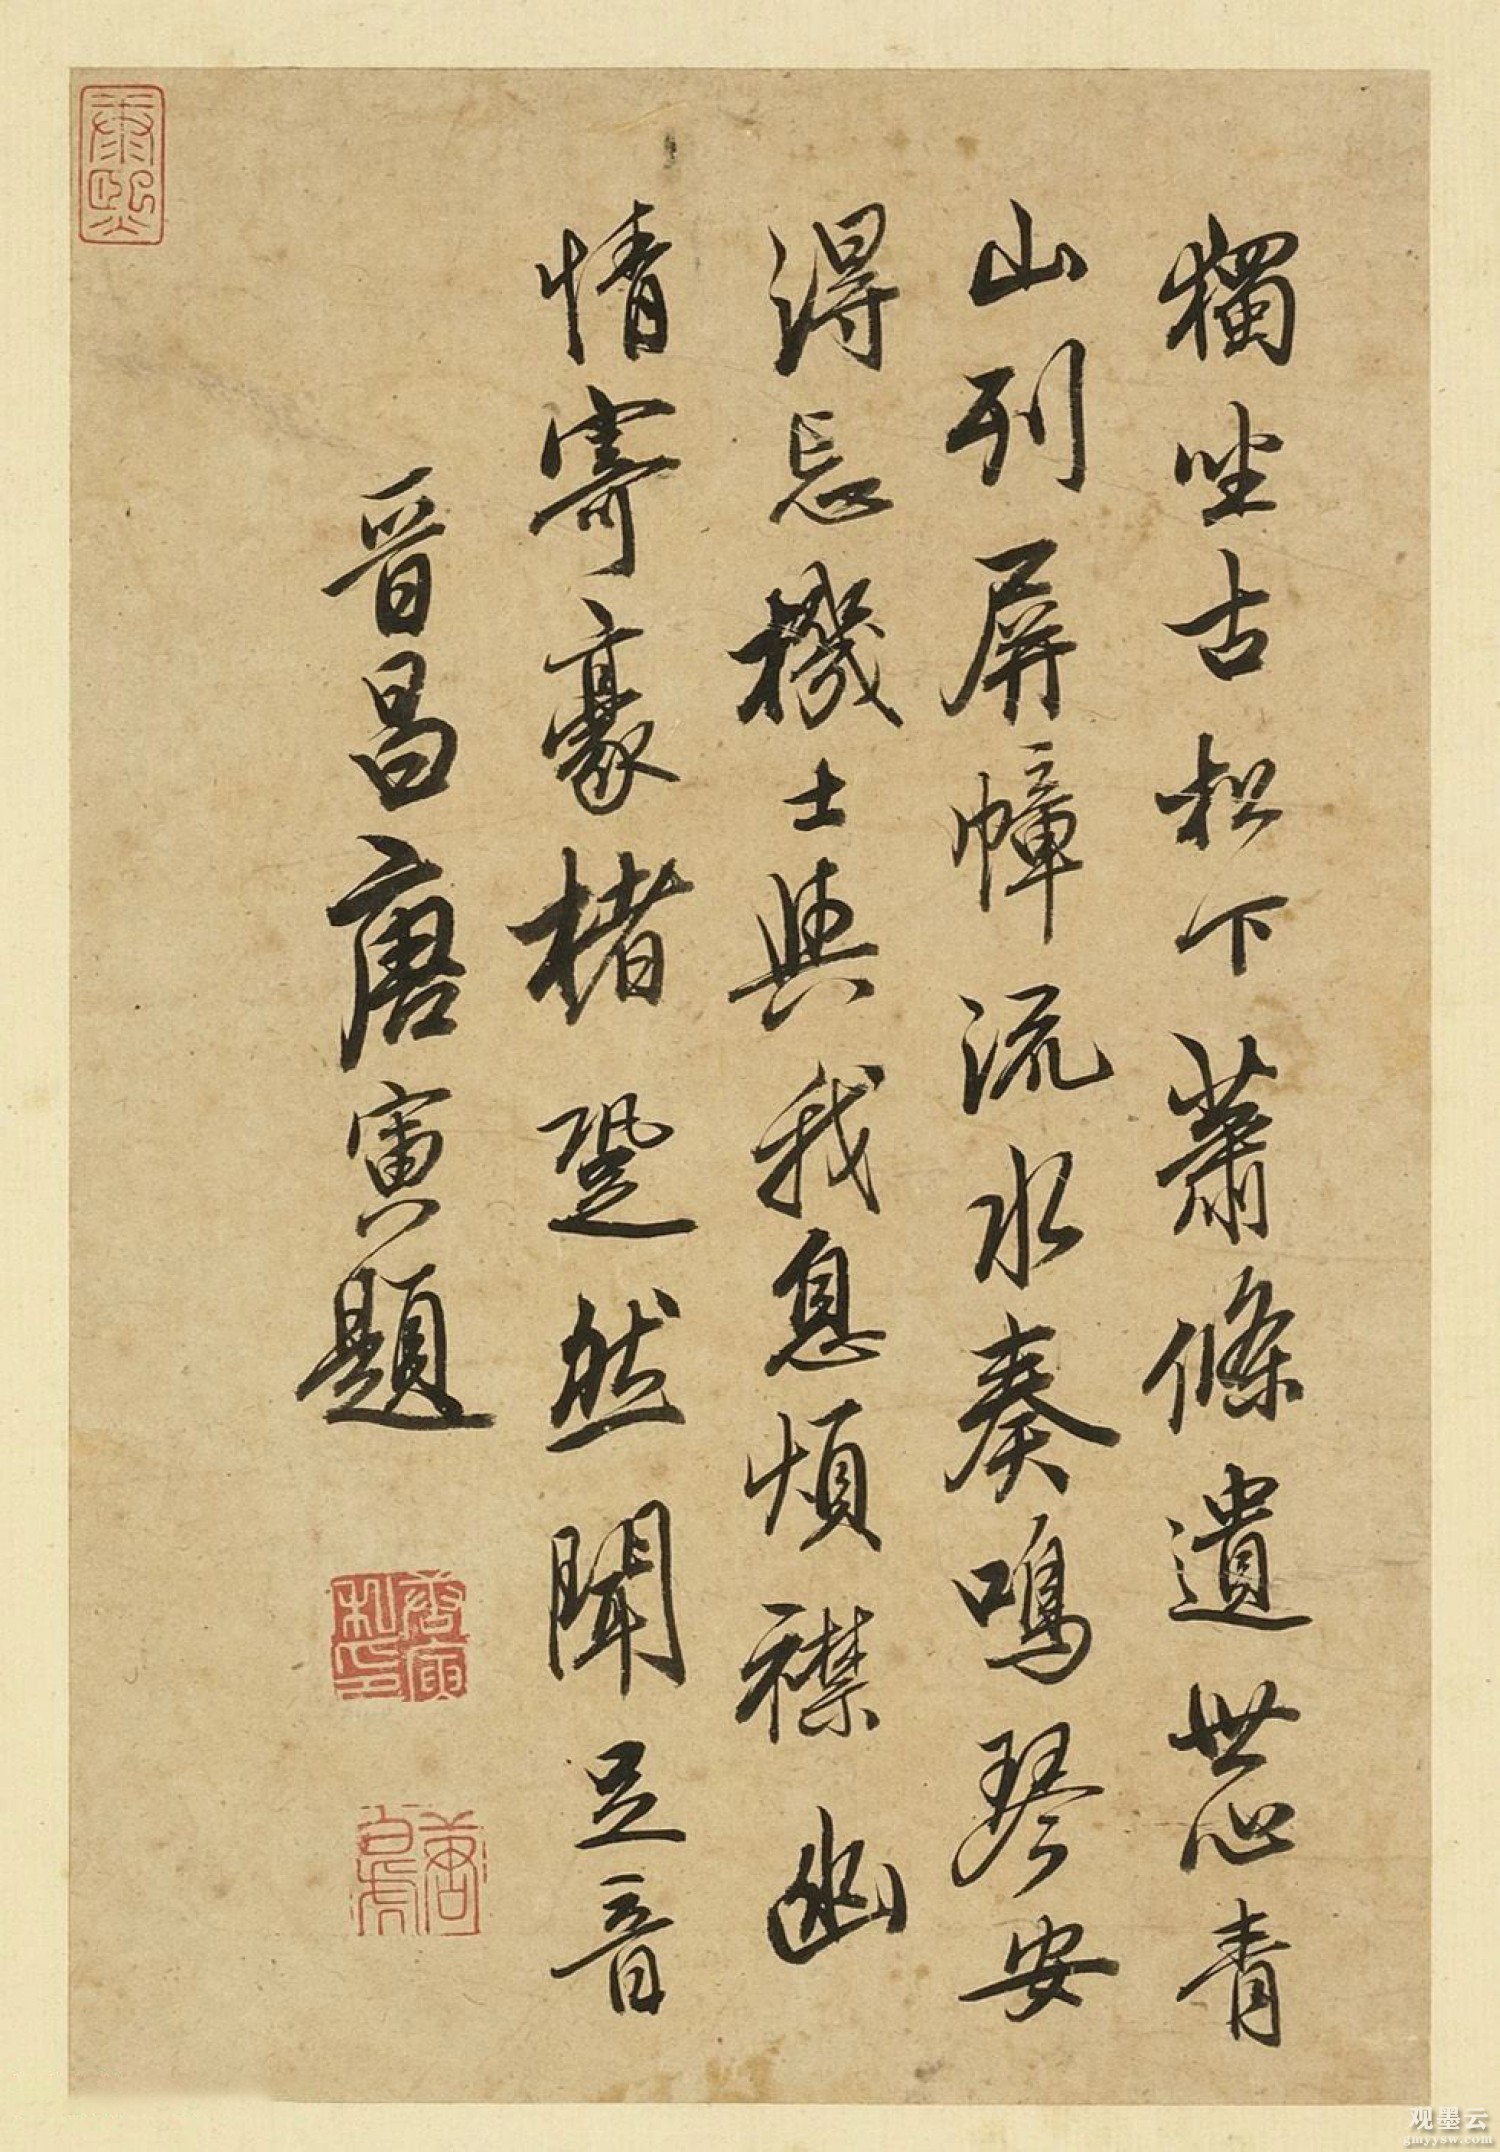 獨坐古松下蕭條遺世心青
山列屏幛流水奏鳴琴安
得忘機士與我息煩襟幽
情寄豪楮跫然聞足音
晉昌唐寅題
唐寅私印
唐白虎
康熙
观墨云
gmyysw.com